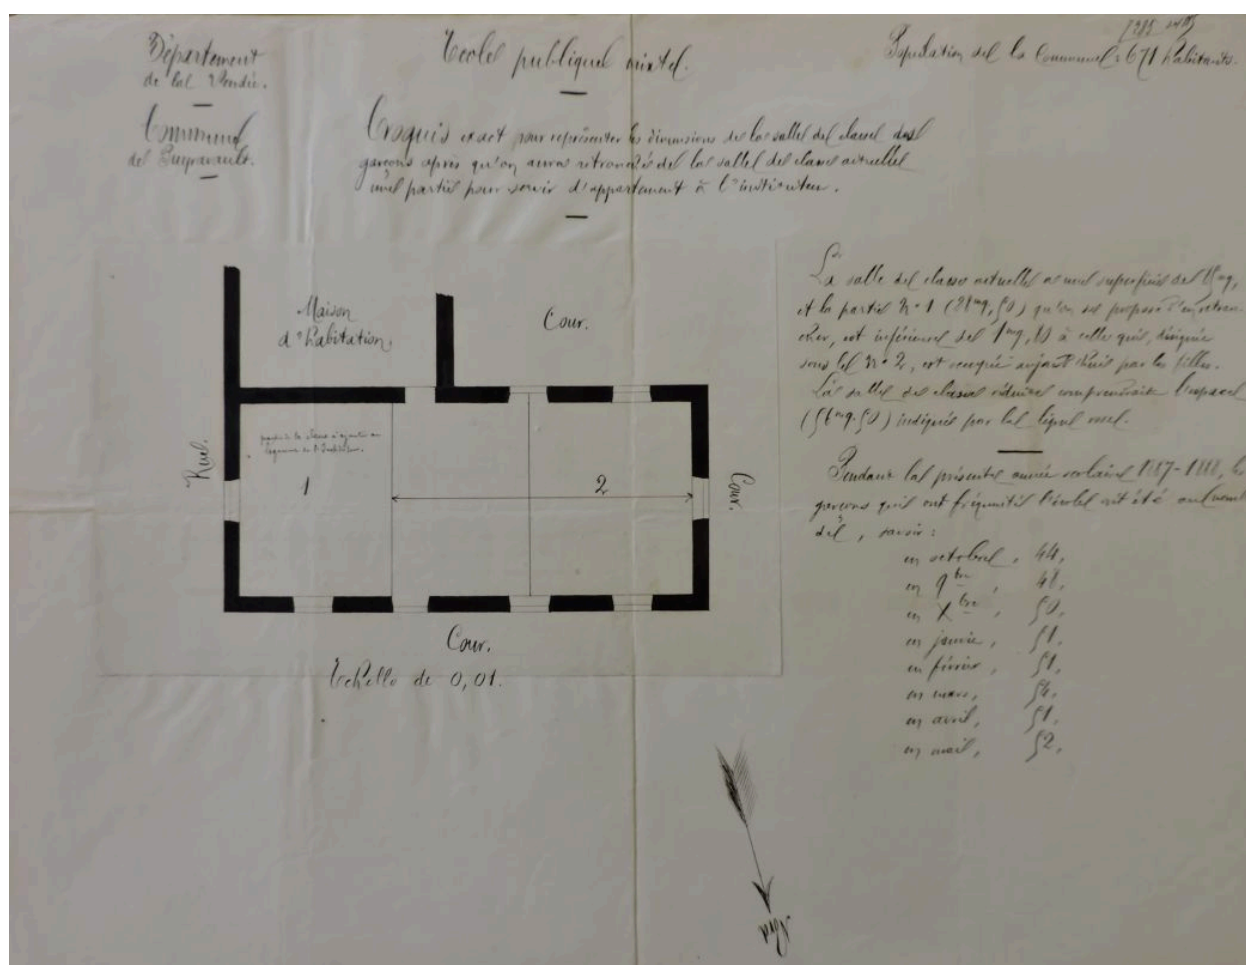 Département
de la Vendée.
Commune
de Puyravault.
École publique mixte.
Population de la Commune : 671 habitants.
Croquis exact pour représenter les dimensions de la salle de classe des
garçons après qu'on aura retranché de la salle de classe actuelle
une partie pour servir d'appartement à l'instituteur.
Maison
d'habitation.
Cour.
Rue.
partie de la classe à ajouter au
logement de l'Instituteur.
1
2
Cour.
Cour.
Échelle de 0,01.
La salle de classe actuelle a une superficie de
et la partie n° 1 (28mq,50) qu'on se propose d'en retran-
cher, est inférieure de à celle qui, désignée
sous le n° 2, est occupée aujourd'hui par les filles.
La salle de classe réduite comprendrait l'espace
(56mq.50) indiqué par la ligne
Pendant la présente année scolaire 1887-1888, les
garçons qui ont fréquenté l'école ont été au nombre
de, savoir :
en octobre, 44,
en 9bre, 48,
en Xbre, 50,
en janvier, 51,
en février, 51,
en mars, 54,
en avril, 51,
en mai, 52,
Nord